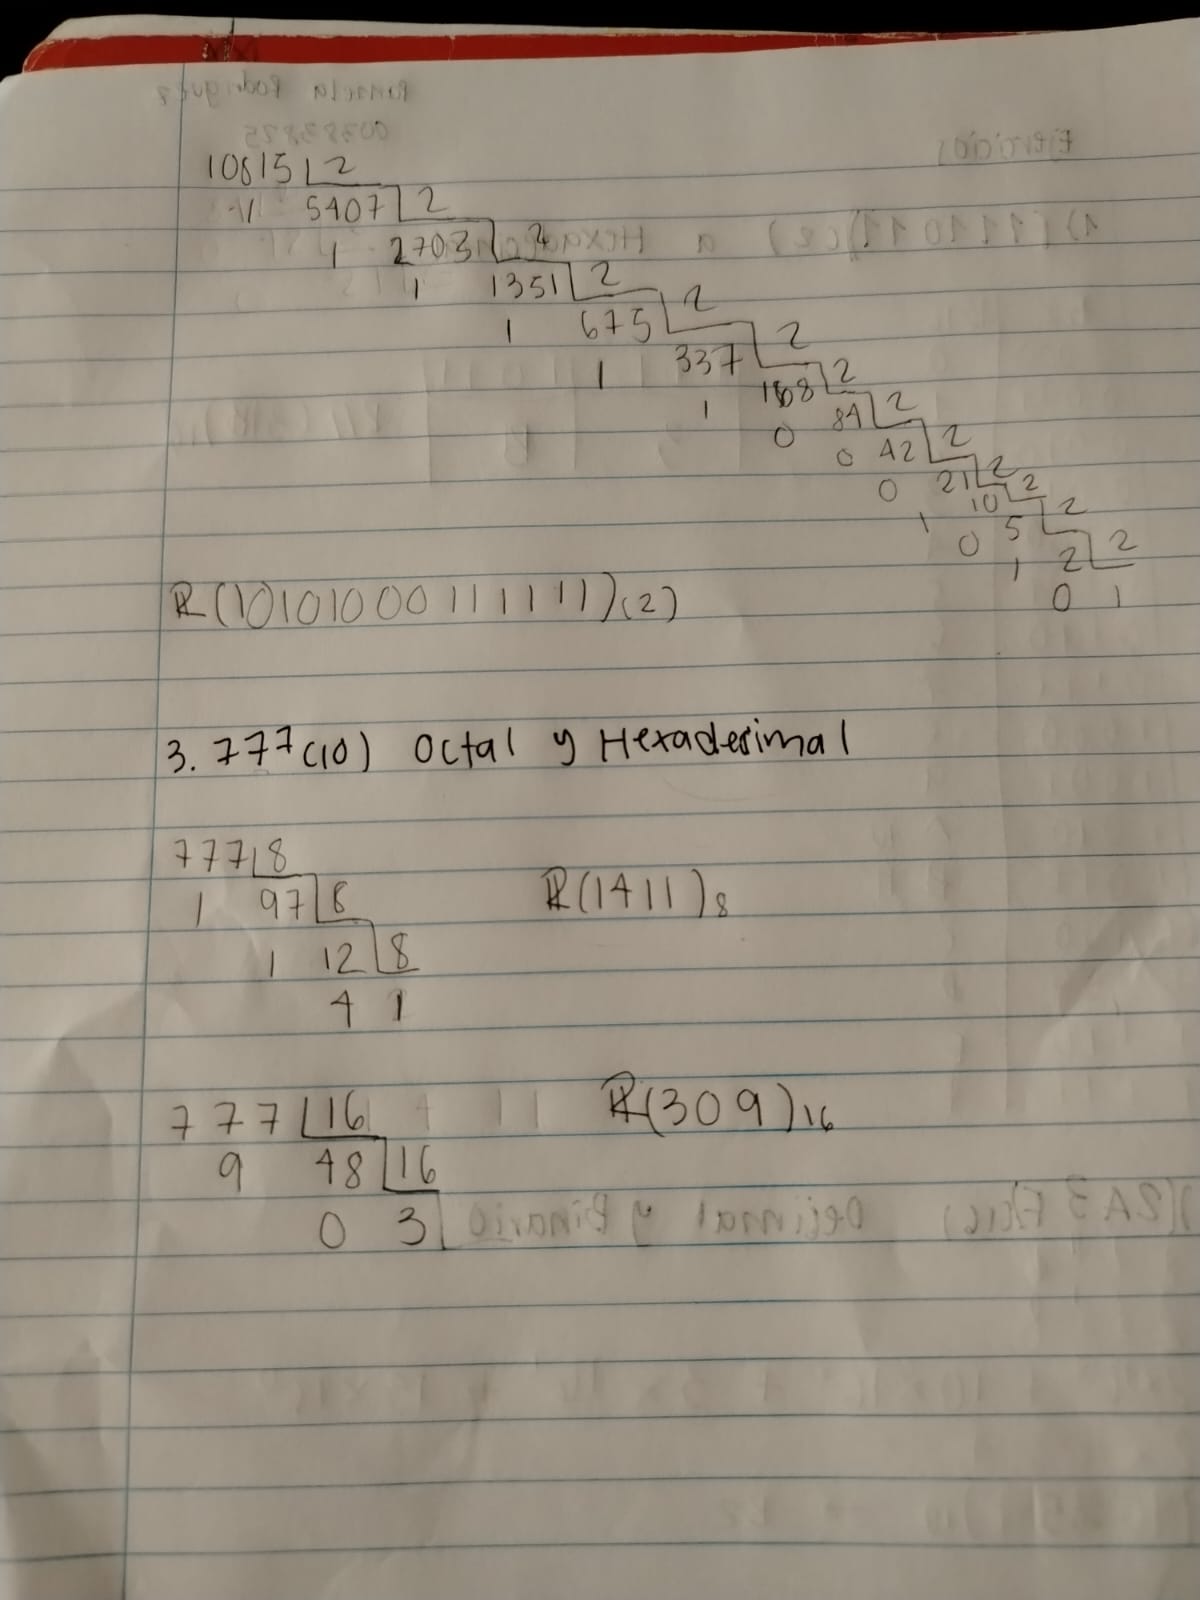 10815 2
1 5407 2
1 2703 2
1 1351 2
1 675 2
1 337 2
1 168 2
0 84 2
0 42 2
0 21 2
1 10 2
0 5 2
1 2 2
0 1
R(10101000111111)(2)
3. 777(10) Octal y Hexadesimal
777 8
1 97 8
1 12 8
4 1
R(1411)8
777 16
9 48 16
0 3
R(309)16